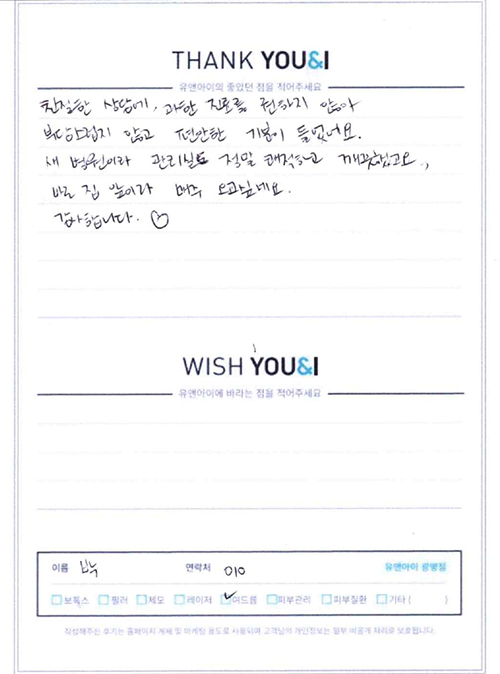 THANK YOU&I
유앤아이의 좋았던 점을 적어주세요
친절한 상담에, 과한 진료를 권하지 않아
부담스럽지 않고 편안한 기분이 들었네요.
새 병원이라 관리실도 정말 쾌적하고 깨끗했고요.,
바로 집 앞이라 매주 오고싶네요.
감사합니다. ♡
WISH YOU&I
유앤아이에 바라는 점을 적어주세요
이름 연락처 010 유앤아이 광명점
보톡스 필러 제모 레이저 여드름 피부관리 피부질환 기타 ( )
작성해주신 후기는 홈페이지 게재 및 마케팅 용도로 사용되며 고객님의 개인정보는 일부 비공개 처리로 보호됩니다.